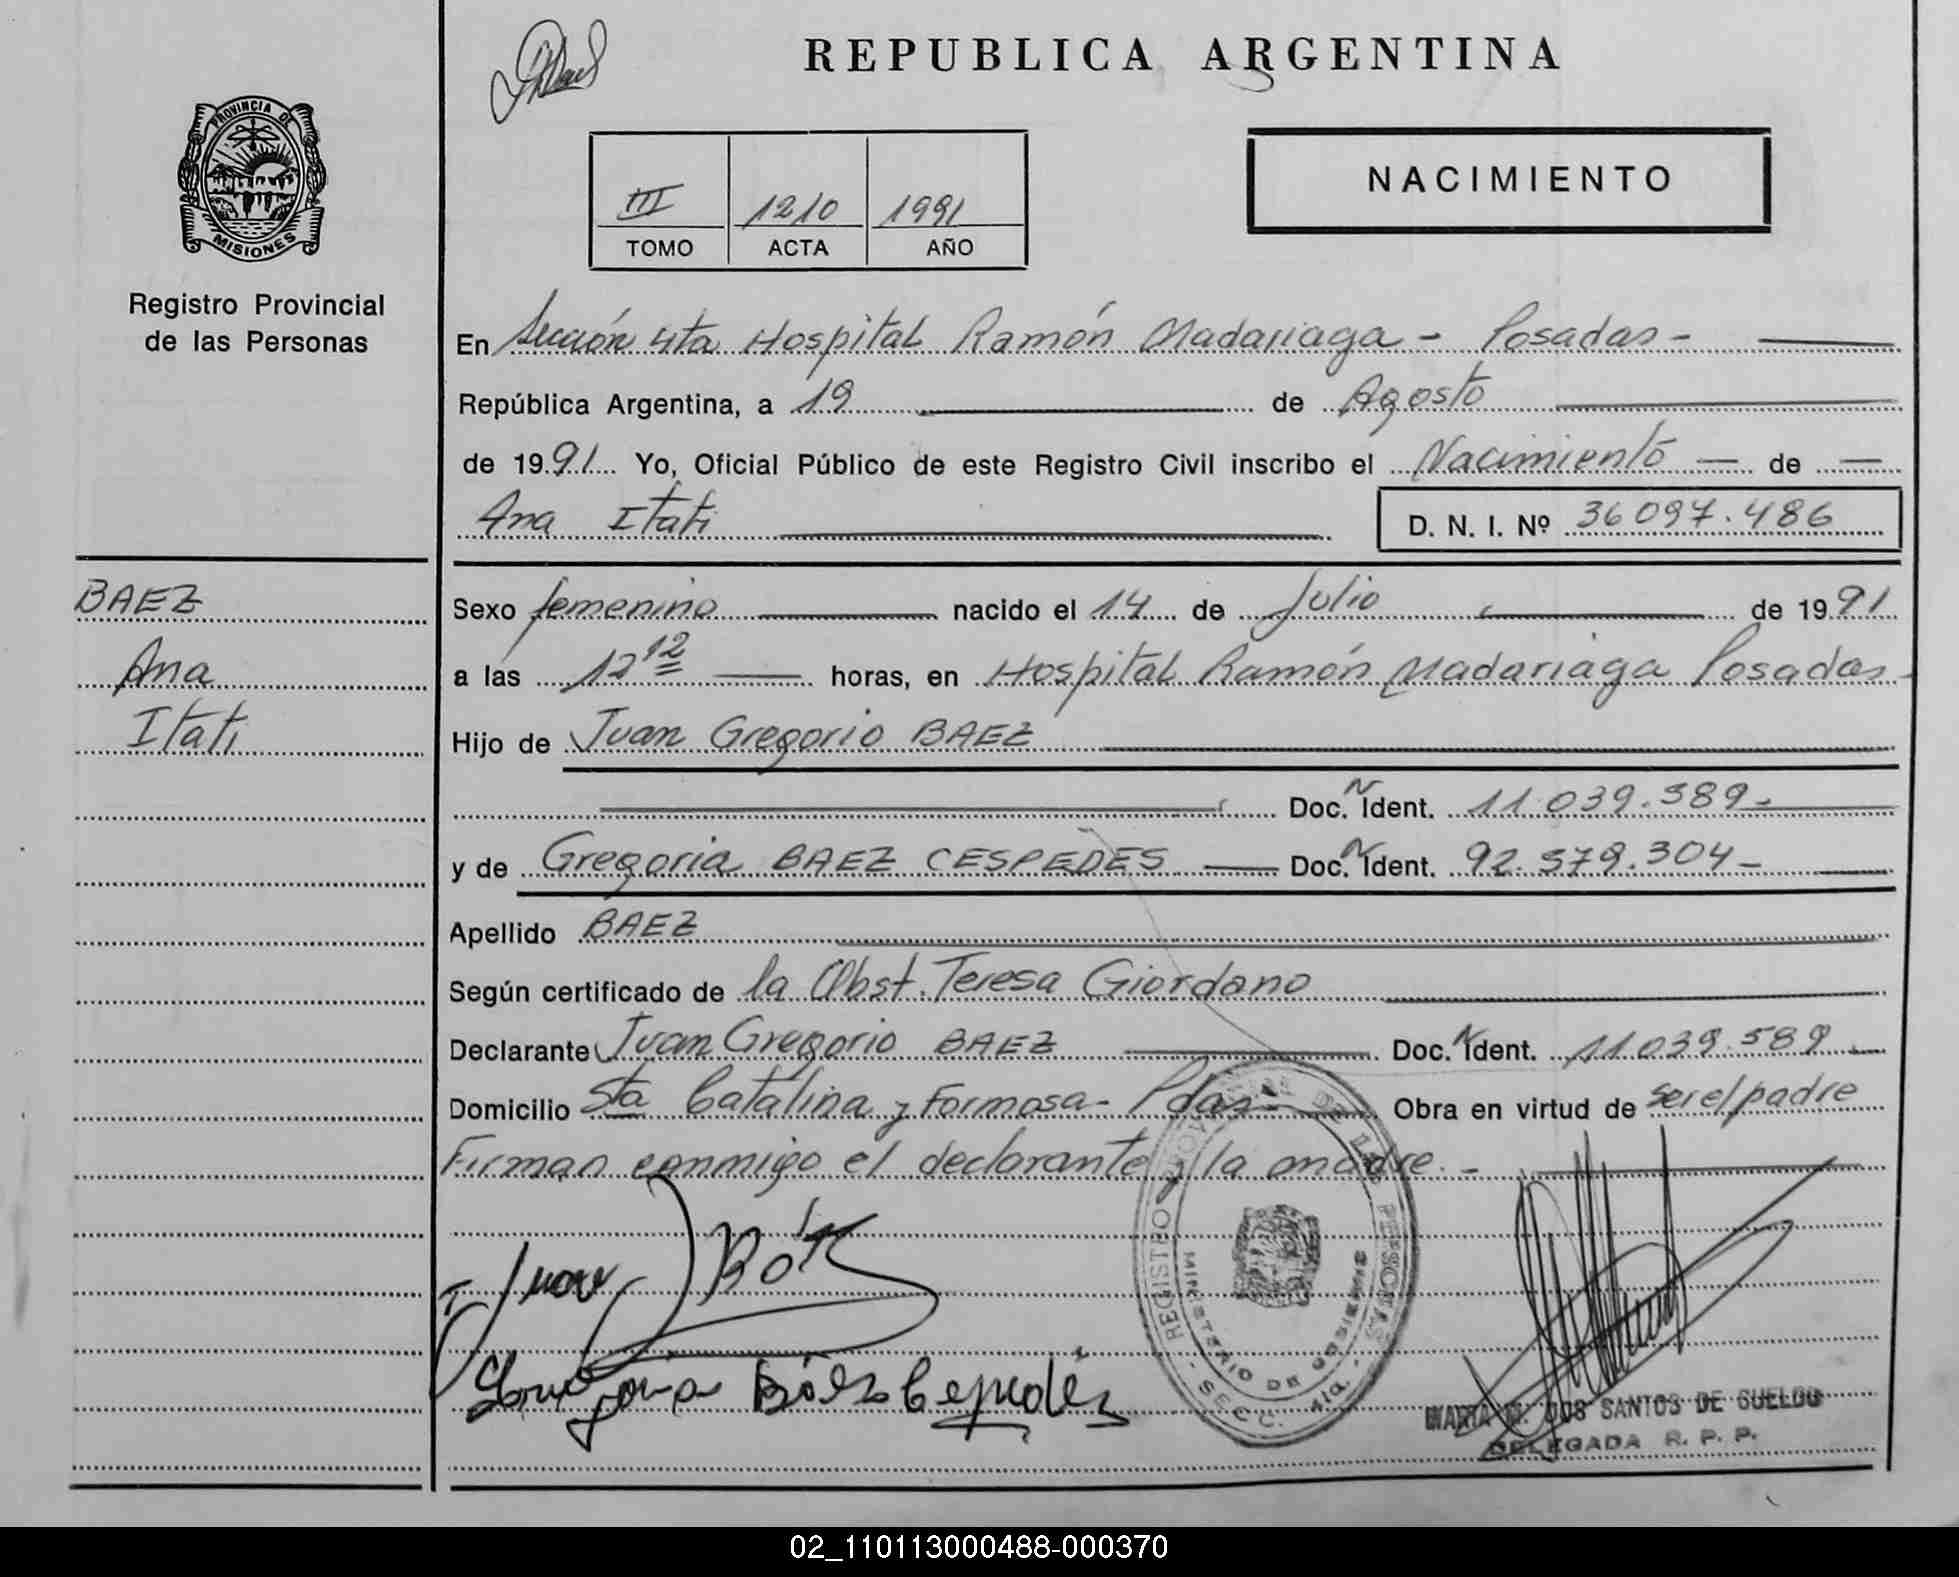 REPUBLICA ARGENTINA
PROVINCIA DE
MISIONES
Registro Provincial
de las Personas
III 1210 1991
TOMO ACTA AÑO
NACIMIENTO
En Sección 4ta Hospital Ramón Madariaga - Posadas -
República Argentina, a 19 de Agosto
de 1991 Yo, Oficial Público de este Registro Civil inscribo el Nacimiento de
Ana Itati D. N. I. Nº 36097.486
BAEZ
Ana
Itati
Sexo femenino nacido el 14 de Julio de 1991
a las 12 12 horas, en Hospital Ramón Madariaga Posadas -
Hijo de Juan Gregorio BAEZ
Doc. N Ident. 11.039.589 -
y de Gregoria BAEZ CESPEDES Doc. N Ident. 92.579.304 -
Apellido BAEZ
Según certificado de la Obst. Teresa Giordano
Declarante Juan Gregorio BAEZ Doc. N Ident. 11.039.589
Domicilio Sta Catalina y Formosa - Pdas - Obra en virtud de ser el padre
Firman conmigo el declarante y la madre. -
Juan Báez
Gregoria Báez Cespedes
REGISTRO PROVINCIAL DE LAS PERSONAS
MINISTERIO DE GOBIERNO
- SECC. 4ta. -
MARIA M. DOS SANTOS DE SUELDO
DELEGADA R. P. P.
02_110113000488-000370